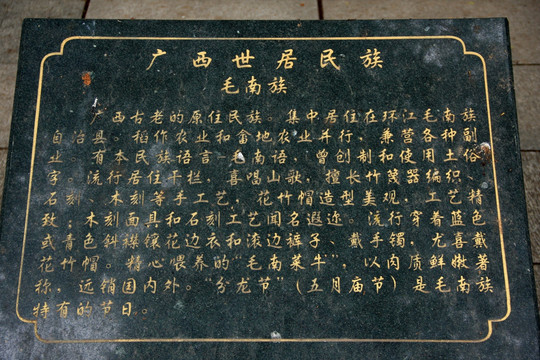 广西世居民族
毛南族
广西古老的原住民族。集中居住在环江毛南族
自治县。稻作农业和畲地农业并行，兼营各种副
业 有本民族语言—毛南语，曾创制和使用土俗
字 流行居住干栏，喜唱山歌，擅长竹篾器编织、
石刻、木刻等手工艺，花竹帽造型美观，工艺精
致；木刻面具和石刻工艺闻名遐迩。流行穿着蓝色
或青色斜襟镶花边衣和滚边裤子、戴手镯，尤喜戴
花竹帽。精心喂养的“毛南菜牛”，以肉质鲜嫩著
称，远销国内外。“分龙节”（五月庙节）是毛南族
特有的节日。